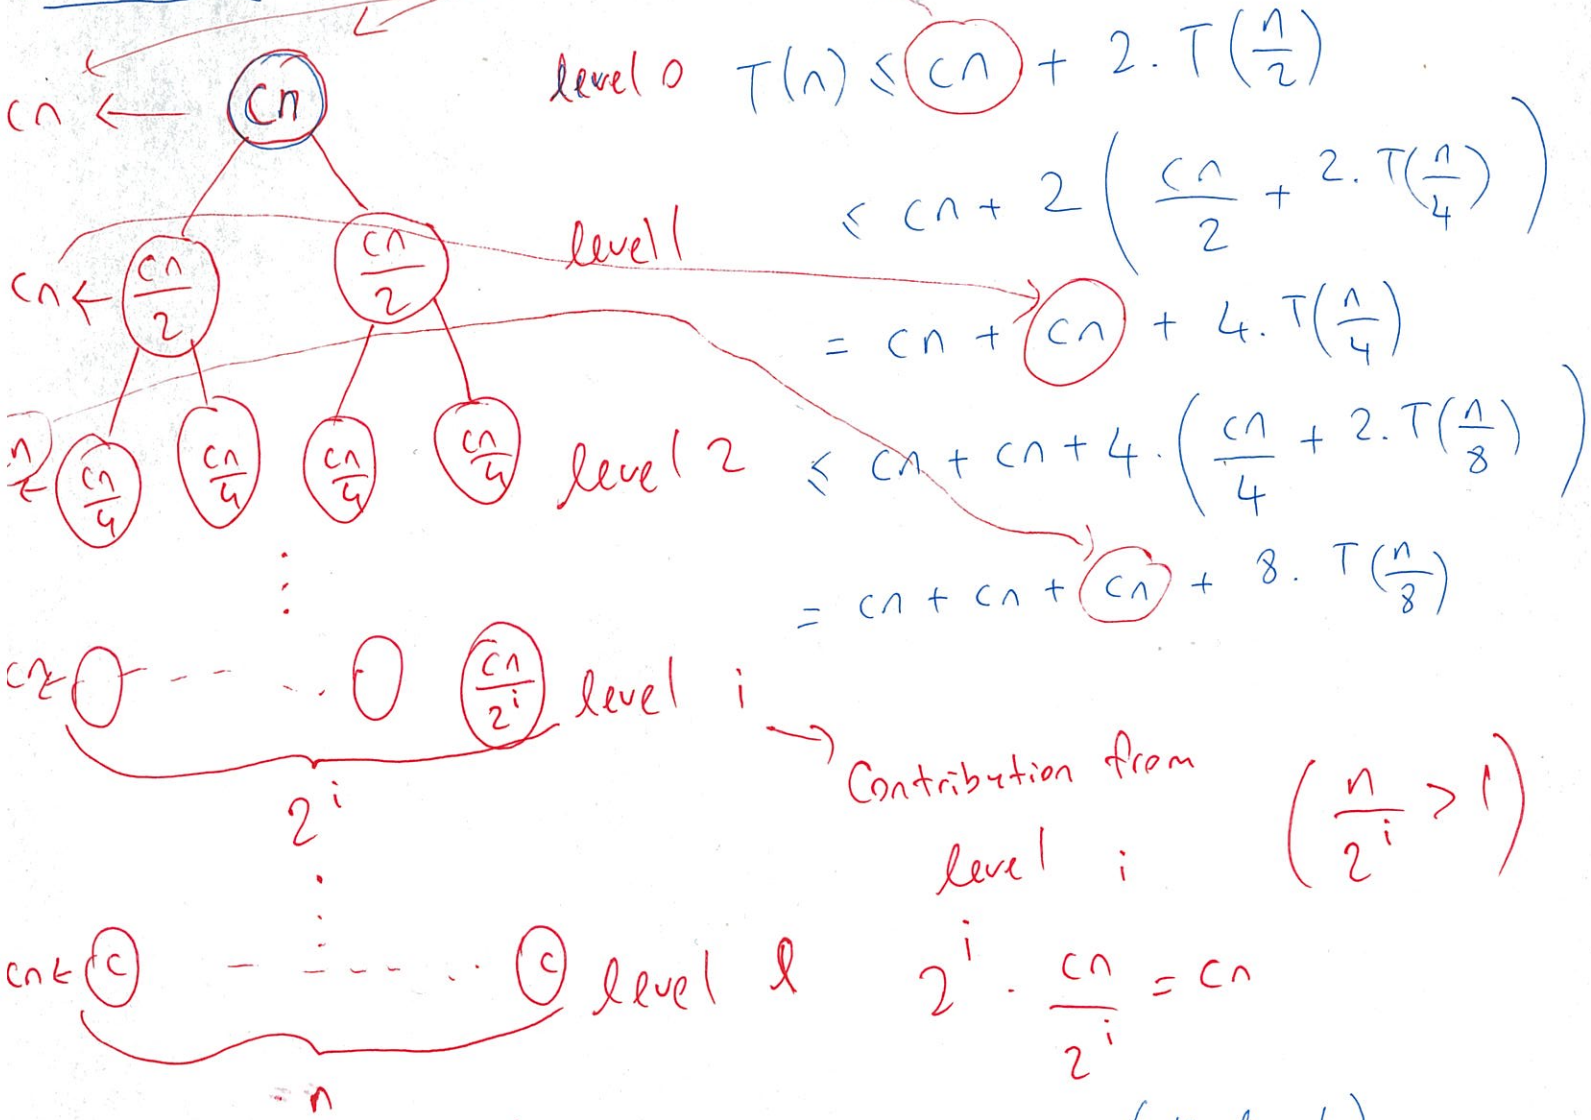 cn ← cn level 0 T(n) ≤ cn + 2. T(n/2)
≤ cn + 2 ( cn/2 + 2. T(n/4) )
cn ← cn/2 cn/2 level 1
= cn + cn + 4. T(n/4)
cn/4 cn/4 cn/4 cn/4 level 2 ≤ cn + cn + 4. ( cn/4 + 2. T(n/8) )
= cn + cn + cn + 8. T(n/8)
cn ← cn/2^i level i
→ Contribution from level i (n/2^i > 1)
2^i
cn ← c c level l 2^i . cn/2^i = cn
n